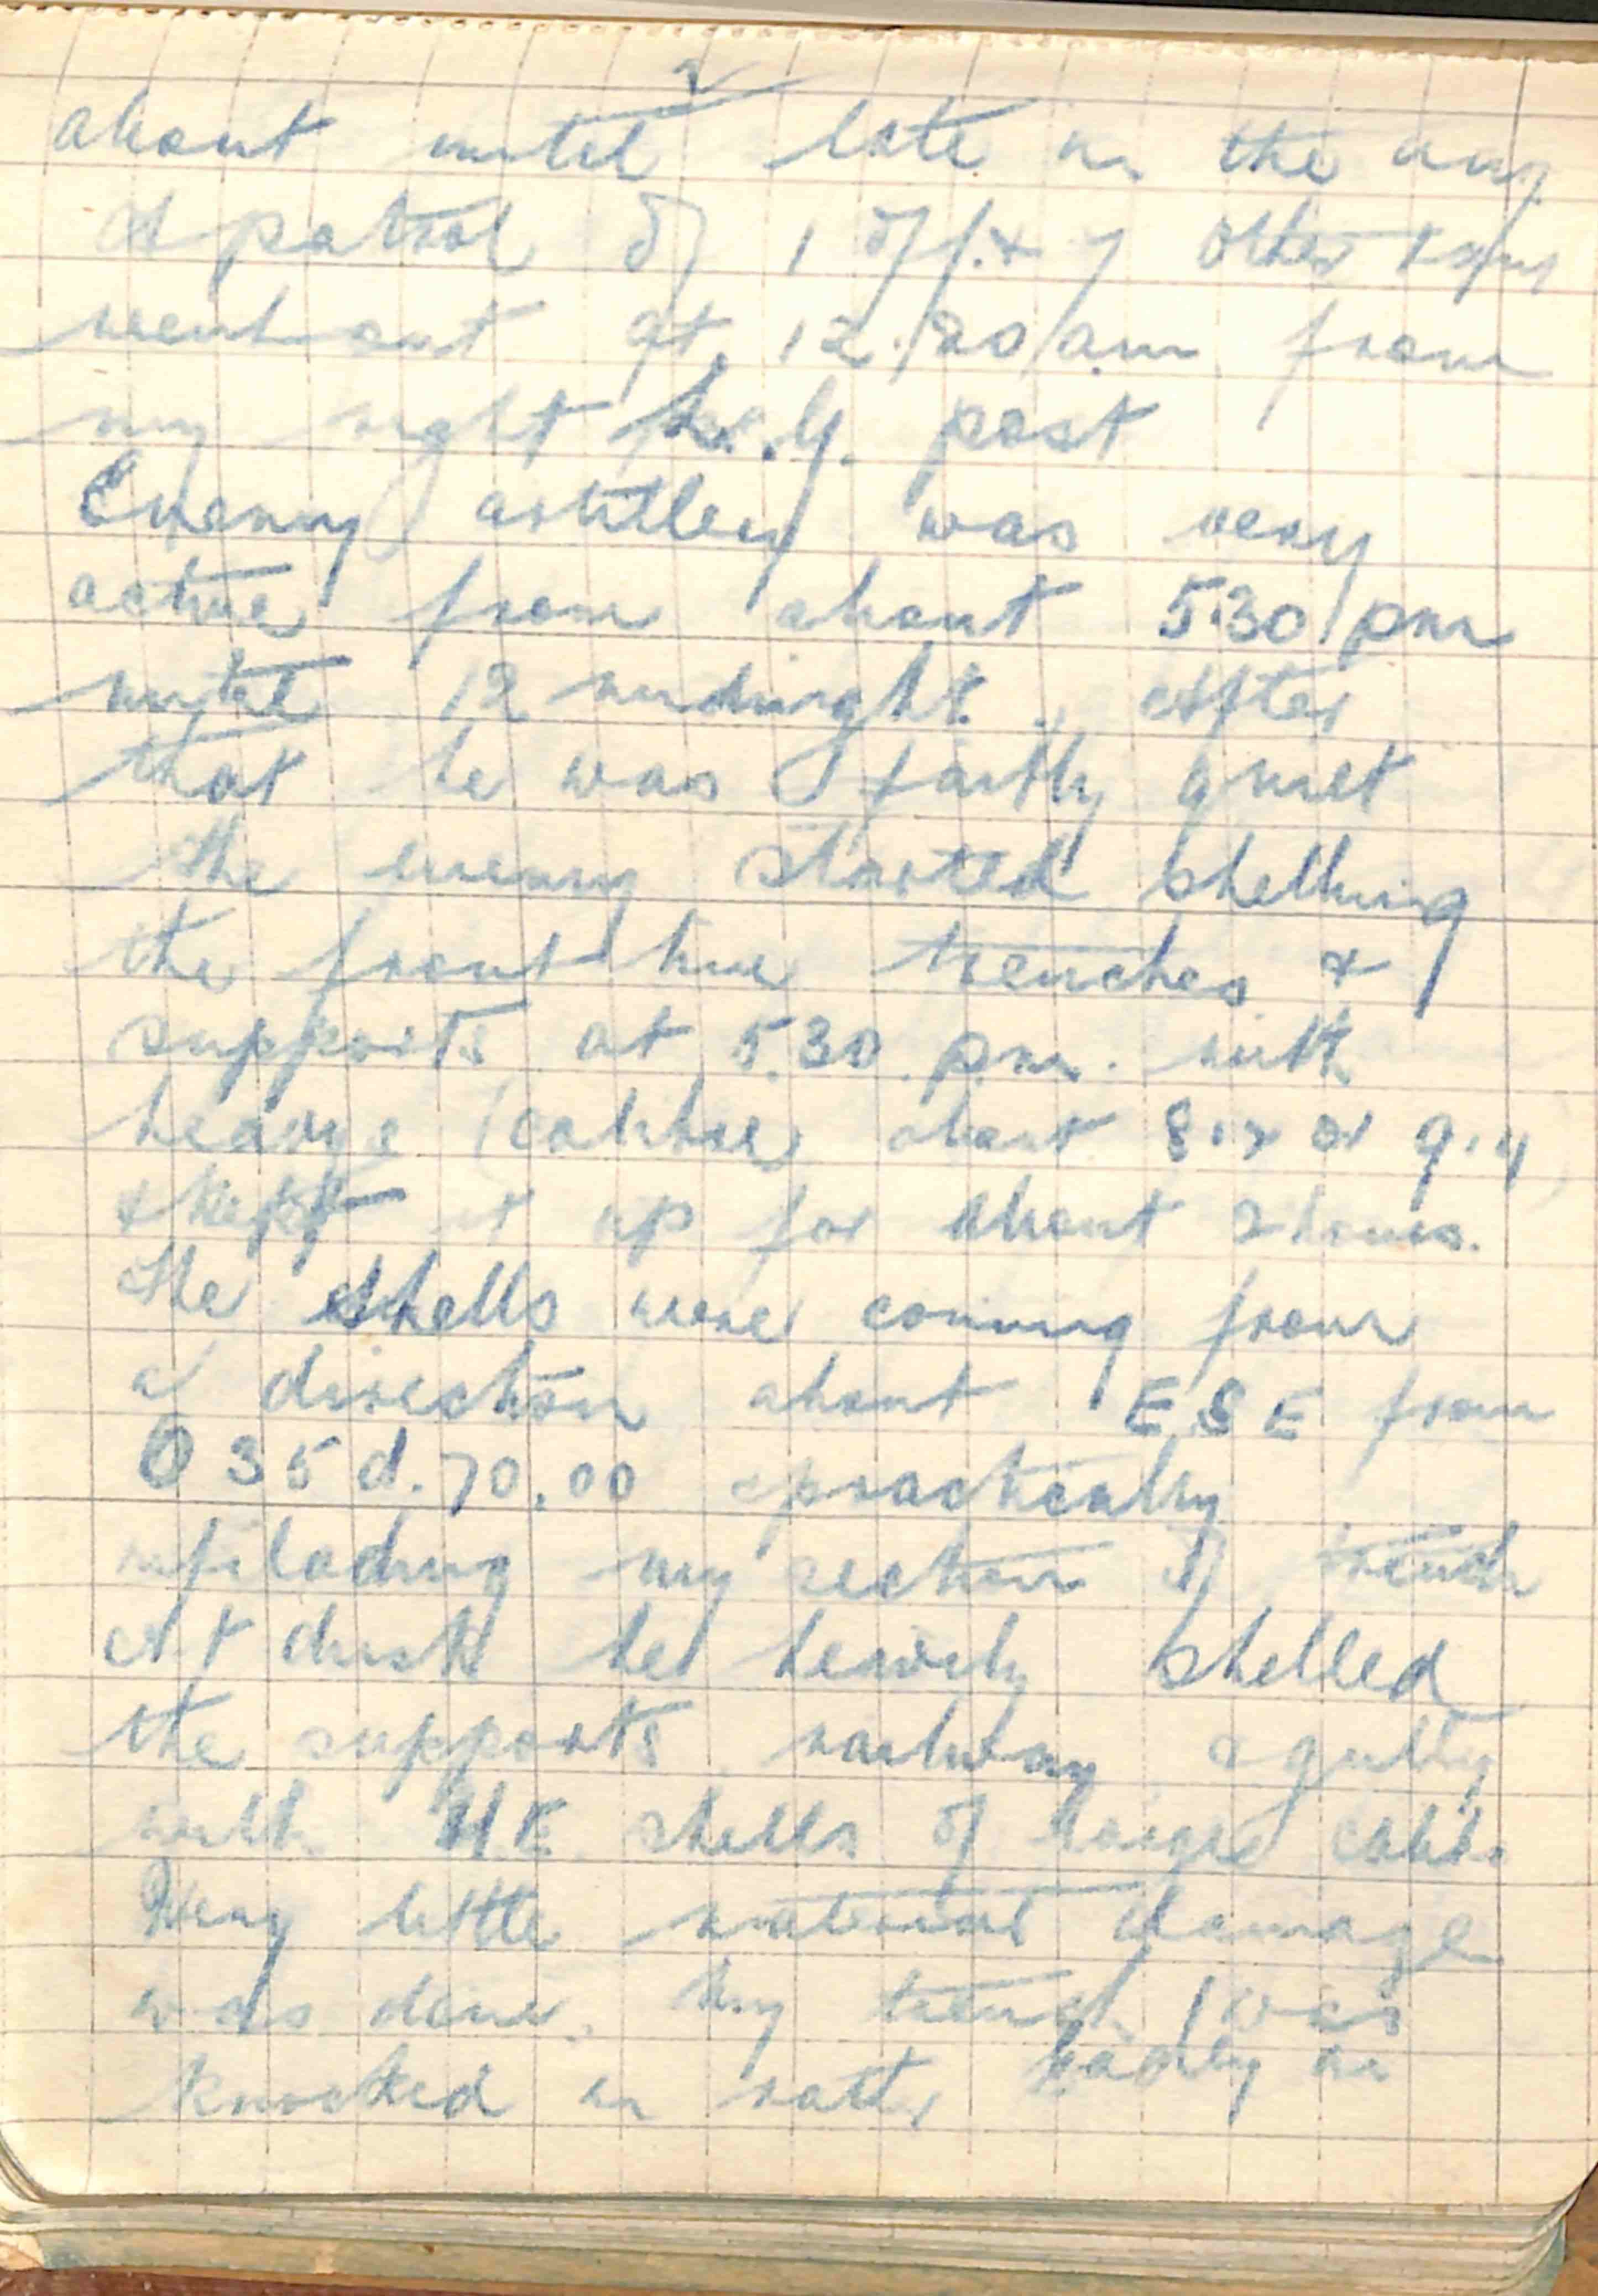 2
about until late in the
A patrol of 1 Off. & 7 other
went out at 12.20 am from
my right L.G. post
Enemy artillery was very
active from about 5.30 pm
until 12 midnight. After
that he was fairly quiet
the enemy started shelling
the front line trenches &
supports at 5.30 p.m. with
heavys (calibre about 8.2 or 9.4)
& kept it up for about 2 hours.
The shells were coming from
a direction about E.S.E from
O 35 d.70.00 practically
enfilading my section of trench
At dusk he heavily shelled
the supports railway & gully
with H.E. shells of large calib.
Very little material damage
was done. My trench was
knocked in rather badly in